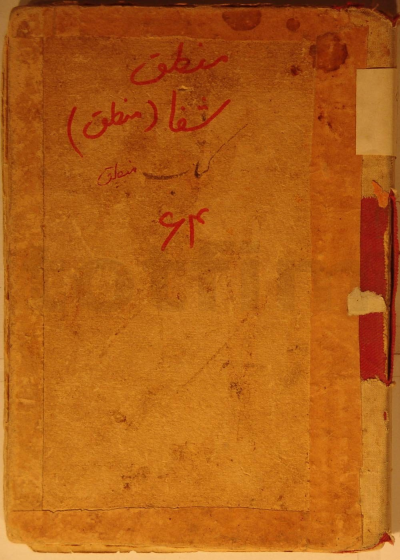 منطق
شفا (منطق)
کتاب منطق
۶۴